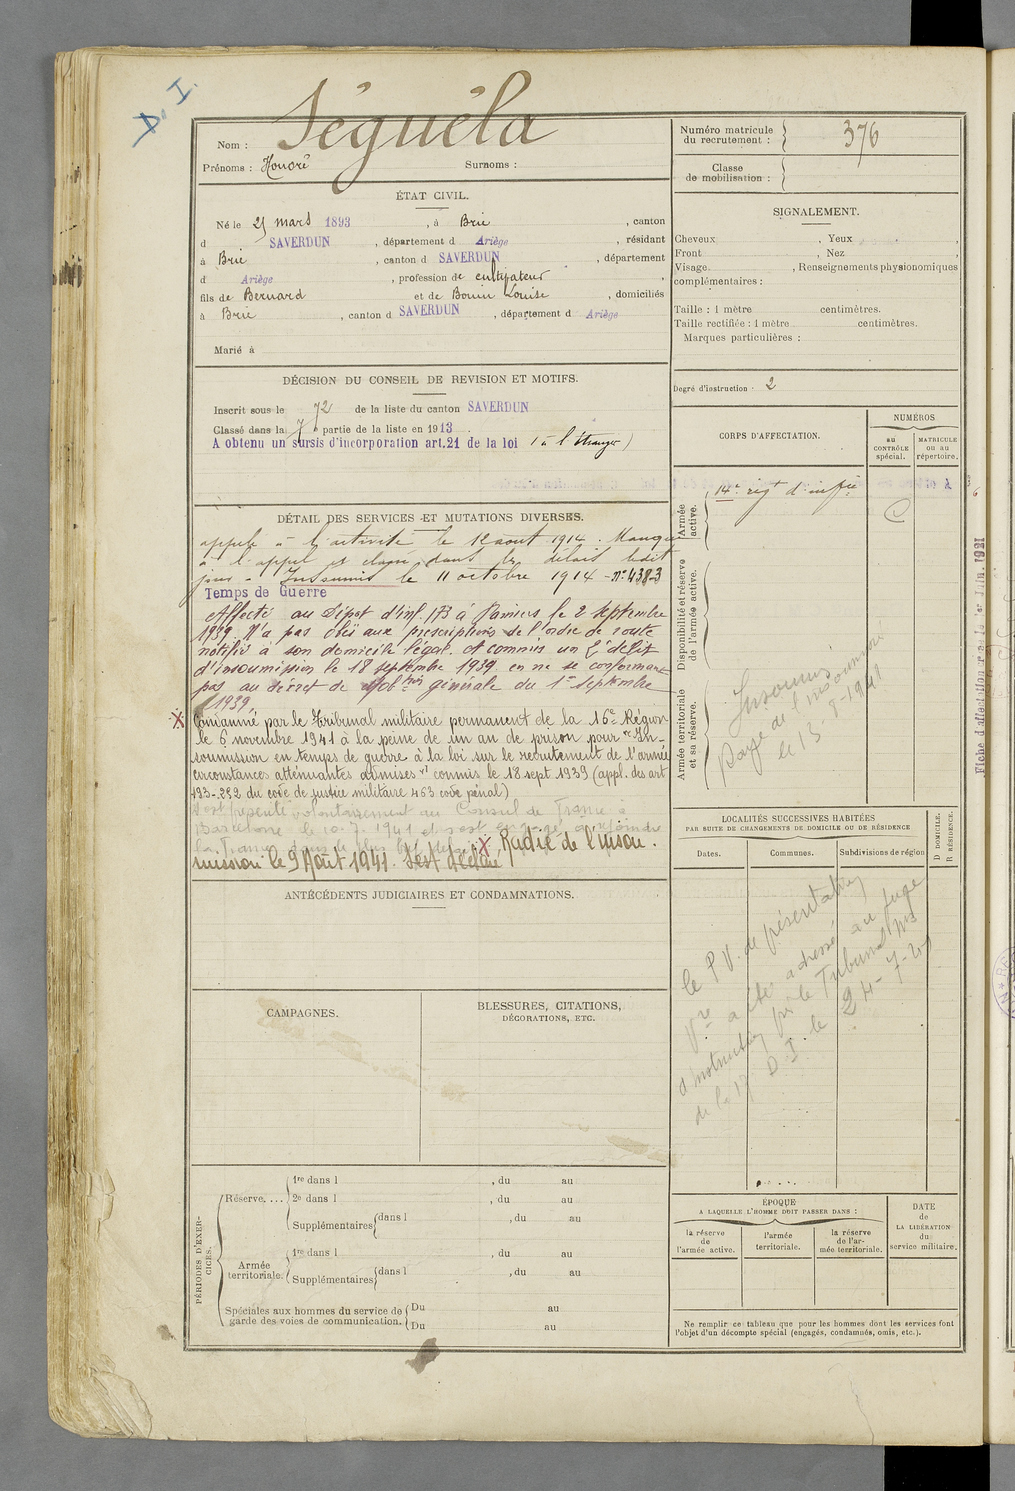 D. I.
Nom : Séguéla
Prénoms : Honoré Surnoms :
Numéro matricule du recrutement : 376
Classe de mobilisation :
ÉTAT CIVIL.
Né le 25 mars 1893, à Brie, canton
d SAVERDUN, département d Ariège, résidant
à Brie, canton d SAVERDUN, département
d Ariège, profession de cultivateur,
fils de Bernard et de Bonin Louise, domiciliés
à Brie, canton d SAVERDUN, département d Ariège
Marié à
SIGNALEMENT.
Cheveux , Yeux ,
Front , Nez ,
Visage. , Renseignements physionomiques
complémentaires :
Taille : 1 mètre centimètres.
Taille rectifiée : 1 mètre centimètres.
Marques particulières :
Degré d'instruction · 2
DÉCISION DU CONSEIL DE REVISION ET MOTIFS.
Inscrit sous le 72 de la liste du canton SAVERDUN
Classé dans la 7 partie de la liste en 1913.
A obtenu un sursis d'incorporation art.21 de la loi (à l'étranger)
CORPS D'AFFECTATION.
NUMÉROS
au CONTRÔLE spécial.
MATRICULE ou au répertoire.
Armée active.
14e regt d'infie
Disponibilité et réserve de l'armée active.
Armée territoriale et sa réserve.
Insoumis
Rayé de l'insoumission
le 13-8-1941
DÉTAIL DES SERVICES ET MUTATIONS DIVERSES.
appelé à l'activité le 12 aout 1914. Manque
à l'appel et classé dans les délais ledit
jour - Insoumis le 11 octobre 1914 - N° 4383
Temps de Guerre
Affecté au Dépot d'inf. 173 à Pamiers le 2 septembre
1939. N'a pas obéi aux prescriptions de l'ordre de route
notifié à son domicile légal et commis un 2e délit
d'insoumission le 18 septembre 1939 en ne se conformant
pas au décret de Mobon générale du 1er septembre
1939.
X Condamné par le Tribunal militaire permanent de la 16e Région
le 6 novembre 1941 à la peine de un an de prison pour "In-
soumission en temps de guerre à la loi sur le recrutement de l'armée
circonstances atténuantes admises" commis le 18 sept 1939 (appl. des art
193-.252 du code de justice militaire 463 code pénal)
S'est présenté volontairement au Consul de France à
Barcelone le 10-7-1941 et s'est engagé à rejoindre
la France dans le plus bref
X Radié de l'insou-
mission le 9 Août 1941.
LOCALITÉS SUCCESSIVES HABITÉES
PAR SUITE DE CHANGEMENTS DE DOMICILE OU DE RÉSIDENCE
Dates. Communes. Subdivisions de région
D DOMICILE.
R RÉSIDENCE.
le P.V. de présentation
Vre a été adressé au juge
d'instruction près le Tribunal Mre
de la 17e D.I. le 24-7-41
ANTÉCÉDENTS JUDICIAIRES ET CONDAMNATIONS.
CAMPAGNES.
BLESSURES, CITATIONS,
DÉCORATIONS, ETC.
PÉRIODES D'EXERCICES.
Réserve. ...
1re dans l , du au
2e dans l , du au
Supplémentaires dans l , du au
Armée territoriale.
1re dans l , du au
Supplémentaires dans l , du au
Spéciales aux hommes du service de garde des voies de communication.
Du au
Du au
ÉPOQUE
A LAQUELLE L'HOMME DOIT PASSER DANS :
la réserve de l'armée active.
l'armée territoriale.
la réserve de l'armée territoriale.
DATE de LA LIBÉRATION du service militaire.
Ne remplir ce tableau que pour les hommes dont les services font
l'objet d'un décompte spécial (engagés, condamnés, omis, etc.).